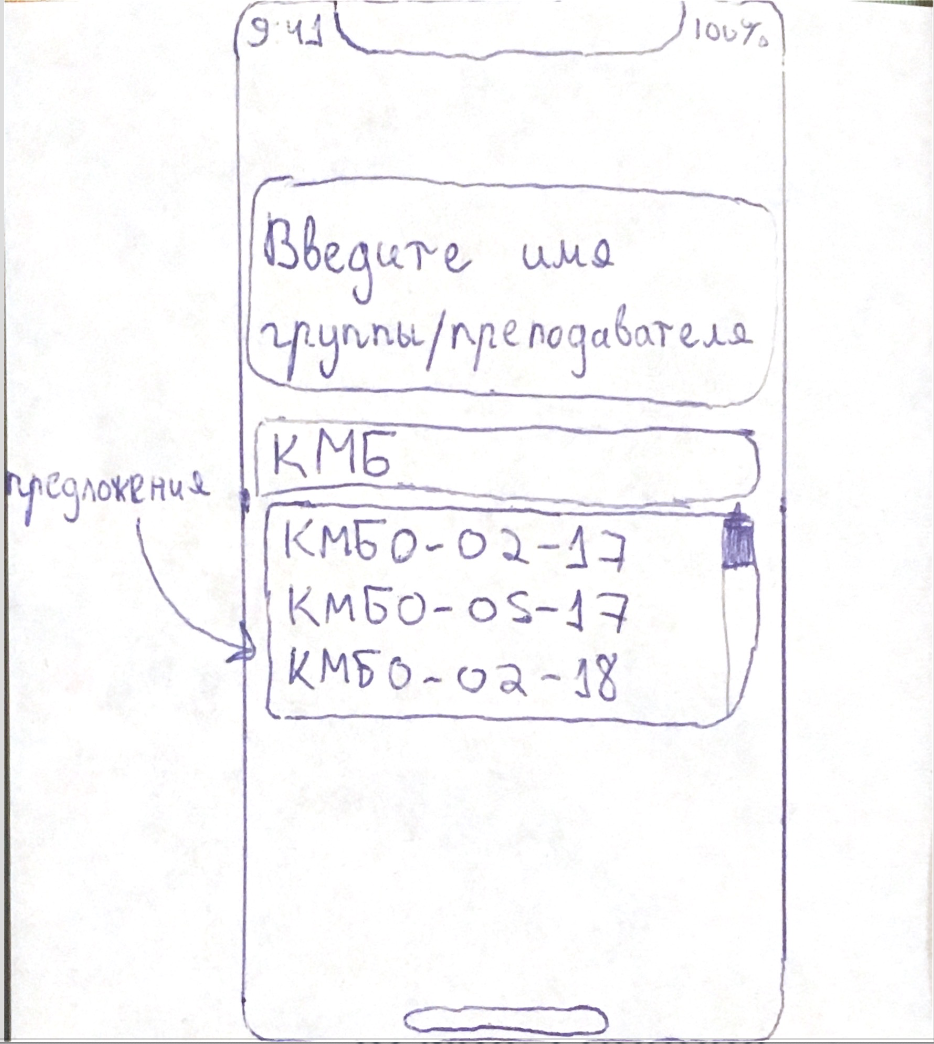 9:41 100%
Введите имя
группы/преподавателя
КМБ
предложения
КМБО-02-17
КМБО-05-17
КМБО-02-18